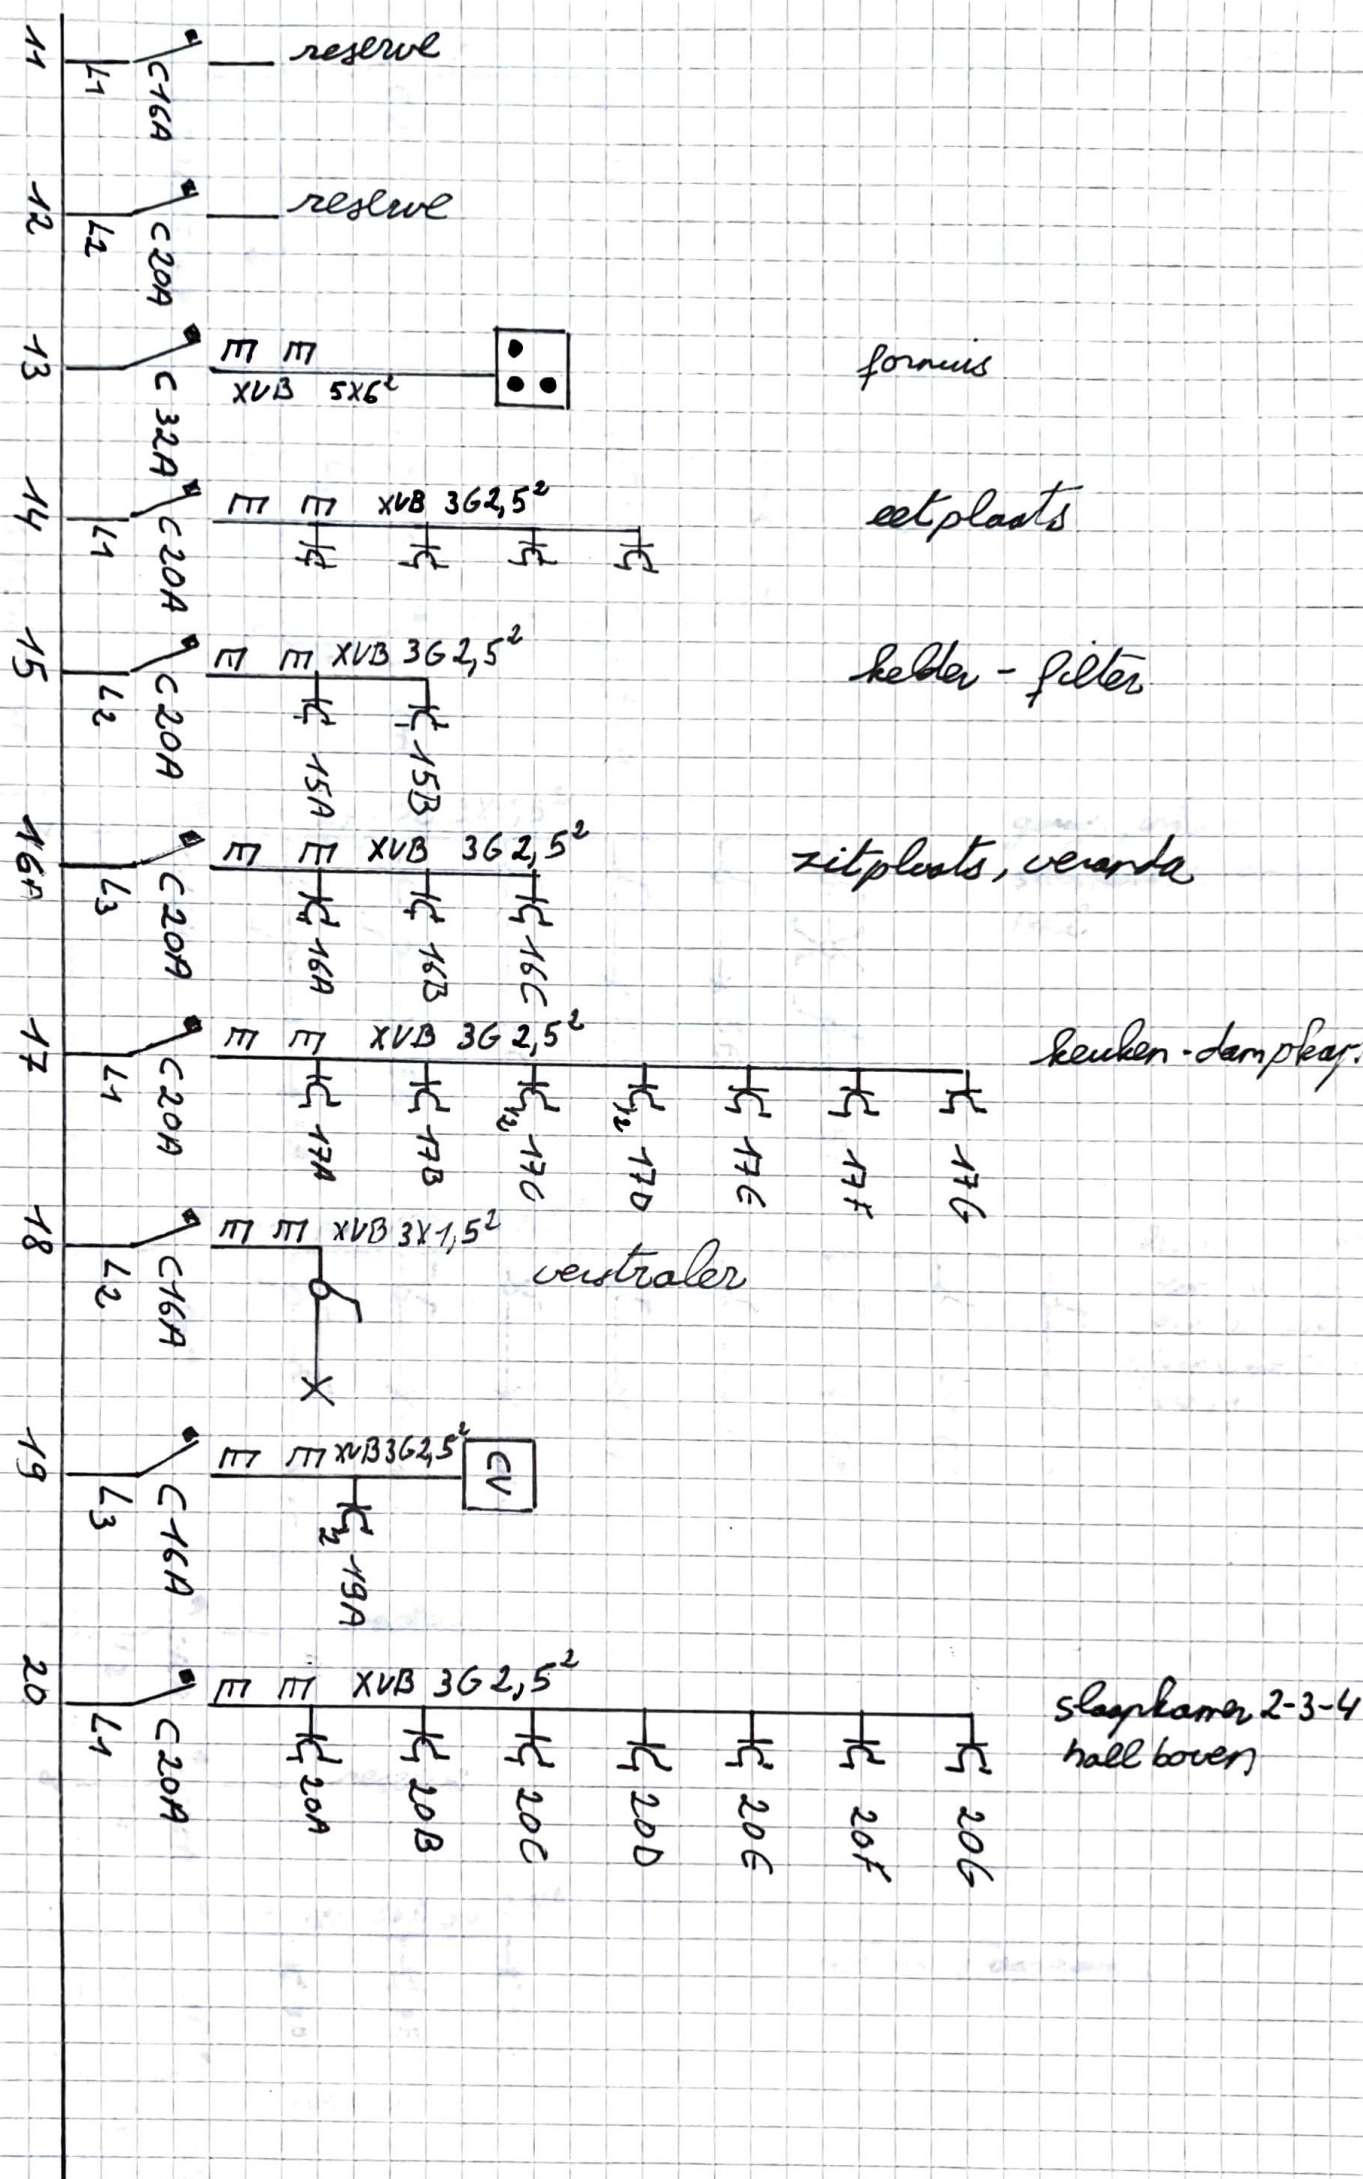 11 L1 C16A reserve
12 L2 C20A reserve
13 C 32A XVB 5X6² fornuis
14 L1 C20A XVB 3G2,5² eetplaats
15 L2 C20A XVB 3G2,5² kelder - filter
15A 15B
16A L3 C20A XVB 3G2,5² zitplaats, veranda
16A 16B 16C
17 L1 C20A XVB 3G2,5² keuken-dampkap
17A 17B 17C 17D 17E 17F 17G
18 L2 C16A XVB 3X1,5² verstraler
19 L3 C16A XVB3G2,5² CV
2 19A
20 L1 C20A XVB 3G2,5² slaapkamer 2-3-4
hall boven
20A 20B 20C 20D 20E 20F 20G